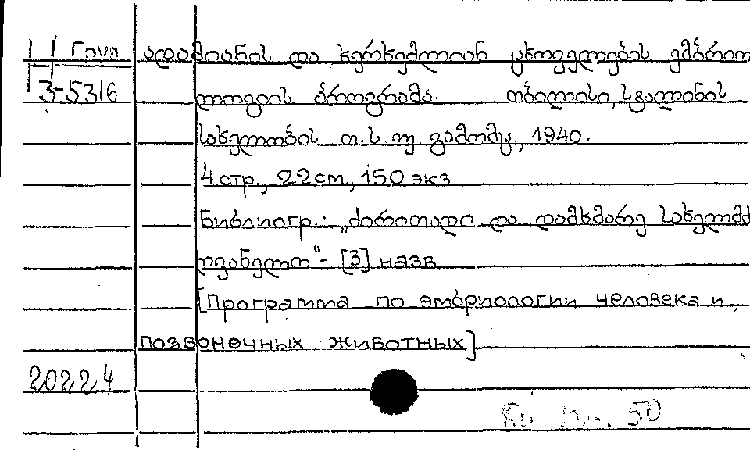 Груз ადამიანის და ხერხემლიან ცხოველების ემბრიო
3-5316 ლოგიის პროგრამა. თბილისი, სტალინის
სახელობის თ. ს. უ. გამომც., 1940.
4 стр., 22 cm., 150 экз
Библиогр.: „ძირითადი და დამხმარე სახელმძ
ღვანელო"- [3] назв
[Программа по эмбриологии человека и
позвоночных животных]
20224
50